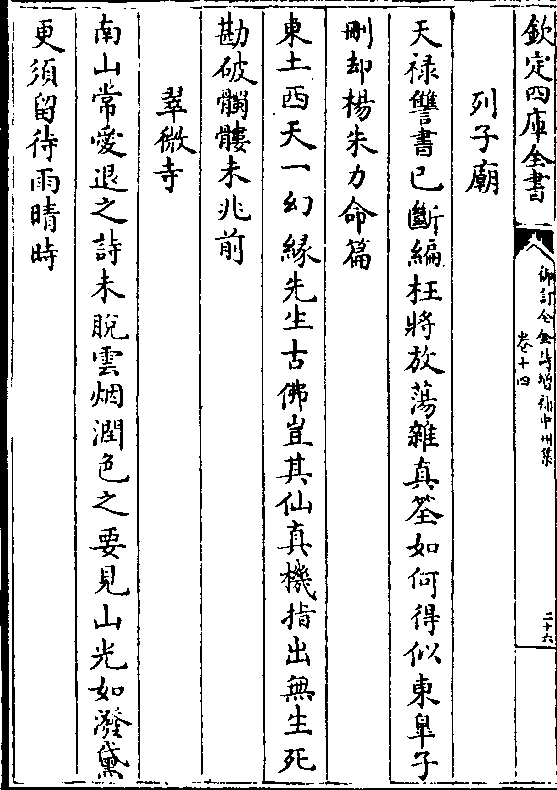 欽定四庫全書
御訂全金詩增補中州集
卷十四
二十六
列子廟
天祿讐書已斷編枉將放蕩雜真筌如何得似東皐子
刪却楊朱力命篇
東土西天一幻緣先生古佛豈其仙真機指出無生死
勘破髑髏未兆前
翠微寺
南山常愛退之詩未脫雲烟潤色之要見山光如潑黛
更須留待雨晴時